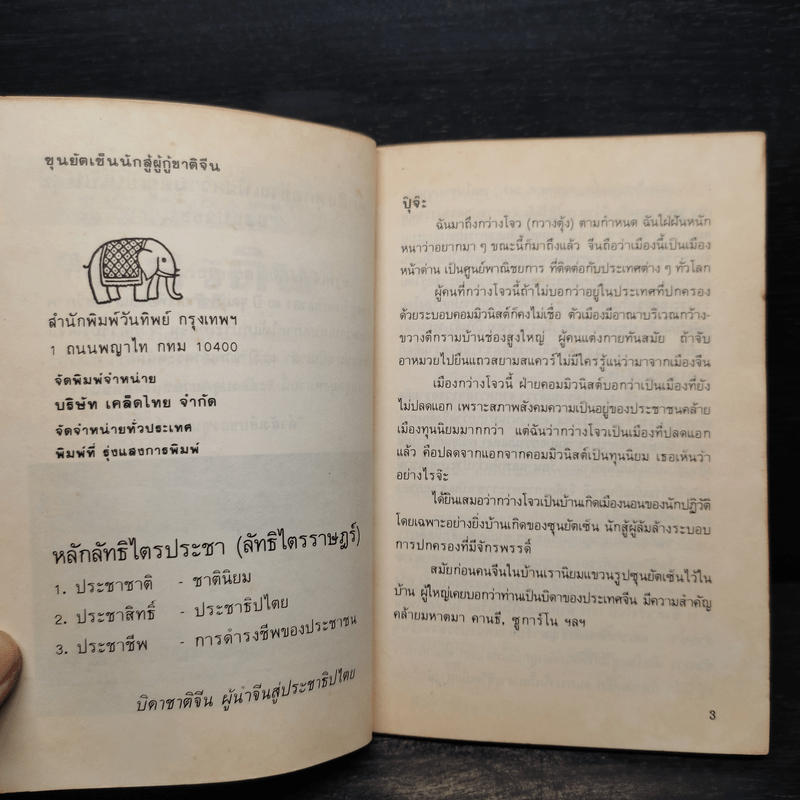 ขุนยัตเซ็นนักสู้ผู้กู้ชาติจีน
สำนักพิมพ์วันทิพย์ กรุงเทพฯ
1 ถนนพญาไท กทม 10400
จัดพิมพ์จำหน่าย
บริษัท เคล็ดไทย จำกัด
จัดจำหน่ายทั่วประเทศ
พิมพ์ที่ รุ่งแสงการพิมพ์
หลักลัทธิไตรประชา (ลัทธิไตรราษฎร์)
1. ประชาชาติ - ชาตินิยม
2. ประชาสิทธิ์ - ประชาธิปไตย
3. ประชาชีพ - การดำรงชีพของประชาชน
บิดาชาติจีน ผู้นำจีนสู่ประชาธิปไตย
ปุ๊จ๊ะ
ฉันมาถึงกว่างโจว (กวางตุ้ง) ตามกำหนด ฉันใฝ่ฝันหนัก
หนาว่าอยากมา ๆ ขณะนี้ก็มาถึงแล้ว จีนถือว่าเมืองนี้เป็นเมือง
หน้าด่าน เป็นศูนย์พาณิชยการ ที่ติดต่อกับประเทศต่าง ๆ ทั่วโลก
ผู้คนที่กว่างโจวนี้ถ้าไม่บอกว่าอยู่ในประเทศที่ปกครอง
ด้วยระบอบคอมมิวนิสต์ก็คงไม่เชื่อ ตัวเมืองมีอาณาบริเวณกว้าง-
ขวางตึกรามบ้านช่องสูงใหญ่ ผู้คนแต่งกายทันสมัย ถ้าจับ
อาหมวยไปยืนแถวสยามสแควร์ไม่มีใครรู้แน่ว่ามาจากเมืองจีน
เมืองกว่างโจวนี้ ฝ่ายคอมมิวนิสต์บอกว่าเป็นเมืองที่ยัง
ไม่ปลดแอก เพราะสภาพสังคมความเป็นอยู่ของประชาชนคล้าย
เมืองทุนนิยมมากกว่า แต่ฉันว่ากว่างโจวเป็นเมืองที่ปลดแอก
แล้ว คือปลดจากแอกจากคอมมิวนิสต์เป็นทุนนิยม เธอเห็นว่า
อย่างไรจ๊ะ
ได้ยินเสมอว่ากว่างโจวเป็นบ้านเกิดเมืองนอนของนักปฏิวัติ
โดยเฉพาะอย่างยิ่งบ้านเกิดของซุนยัตเซ็น นักสู้ผู้ล้มล้างระบอบ
การปกครองที่มีจักรพรรดิ์
สมัยก่อนคนจีนในบ้านเรานิยมแขวนรูปซุนยัตเซ็นไว้ใน
บ้าน ผู้ใหญ่เคยบอกว่าท่านเป็นบิดาของประเทศจีน มีความสำคัญ
คล้ายมหาตมา คานธี, ซูการ์โน ฯลฯ
3